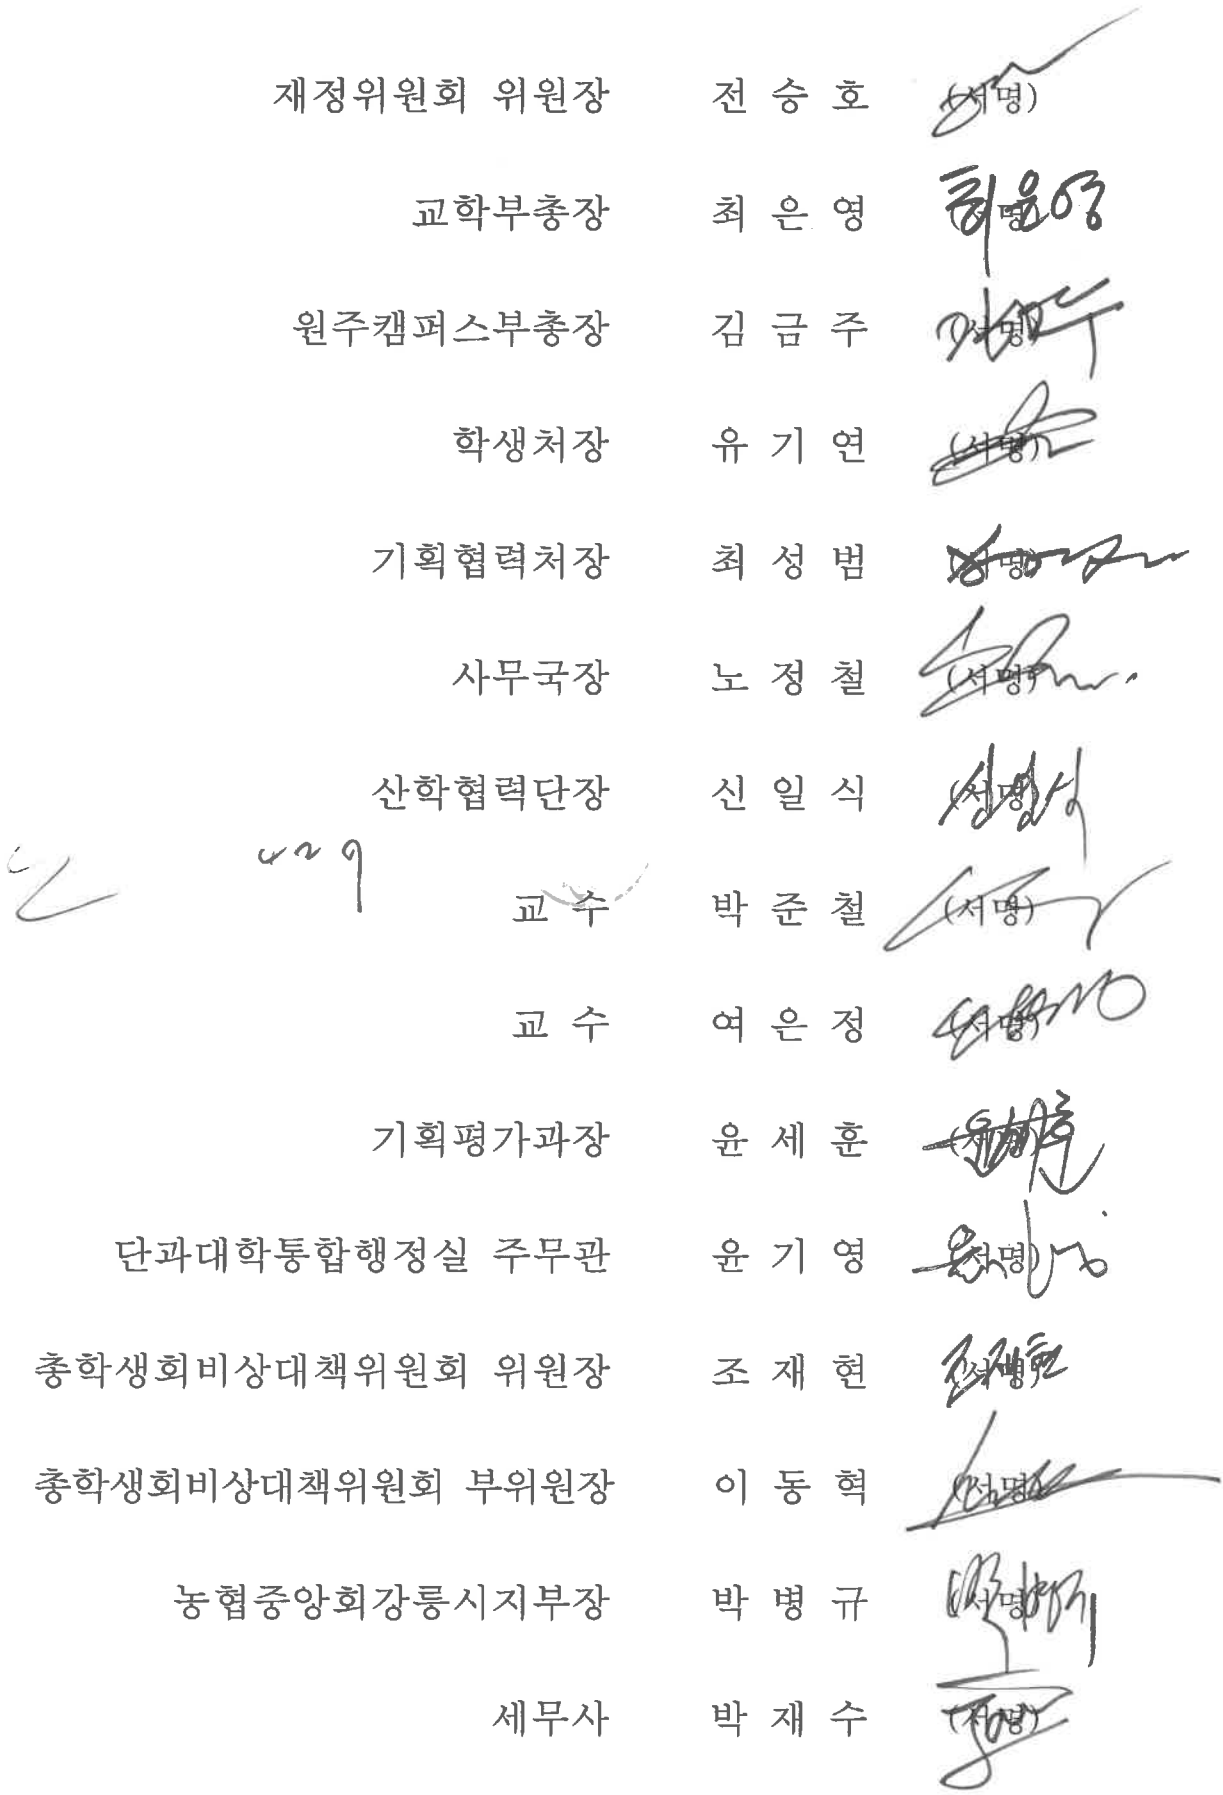 재정위원회 위원장 전 승 호 (서명)
교학부총장 최 은 영 (서명)
원주캠퍼스부총장 김 금 주 (서명)
학생처장 유 기 연 (서명)
기획협력처장 최 성 범 (서명)
사무국장 노 정 철 (서명)
산학협력단장 신 일 식 (서명)
교 수 박 준 철 (서명)
교 수 여 은 정 (서명)
기획평가과장 윤 세 훈 (서명)
단과대학통합행정실 주무관 윤 기 영 (서명)
총학생회비상대책위원회 위원장 조 재 현 (서명)
총학생회비상대책위원회 부위원장 이 동 혁 (서명)
농협중앙회강릉시지부장 박 병 규 (서명)
세무사 박 재 수 (서명)